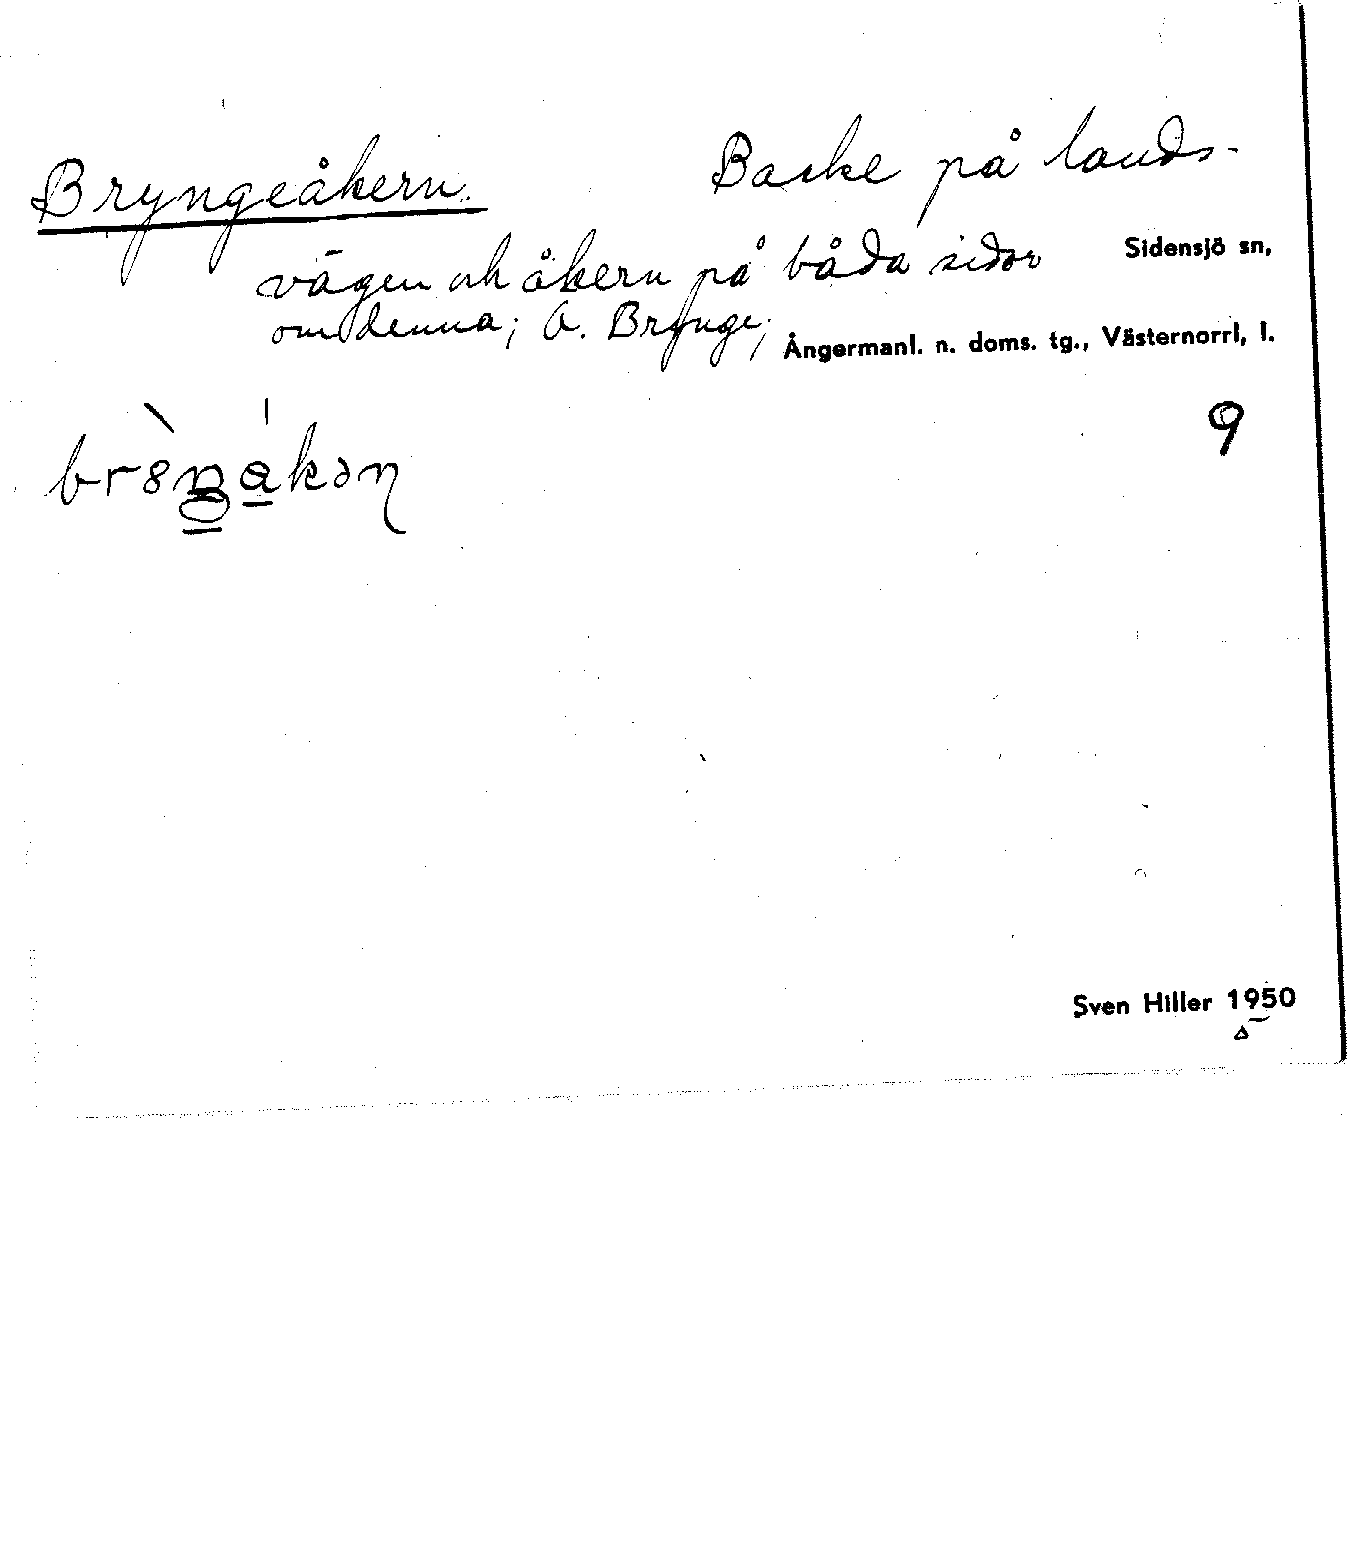 Bryngeåkern. Backe på lands-
vägen och åkern på båda sidor Sidensjö sn,
om denna; Ö. Brynge; Ångermanl. n. doms. tg., Västernorrl, l.
9
Sven Hiller 1950